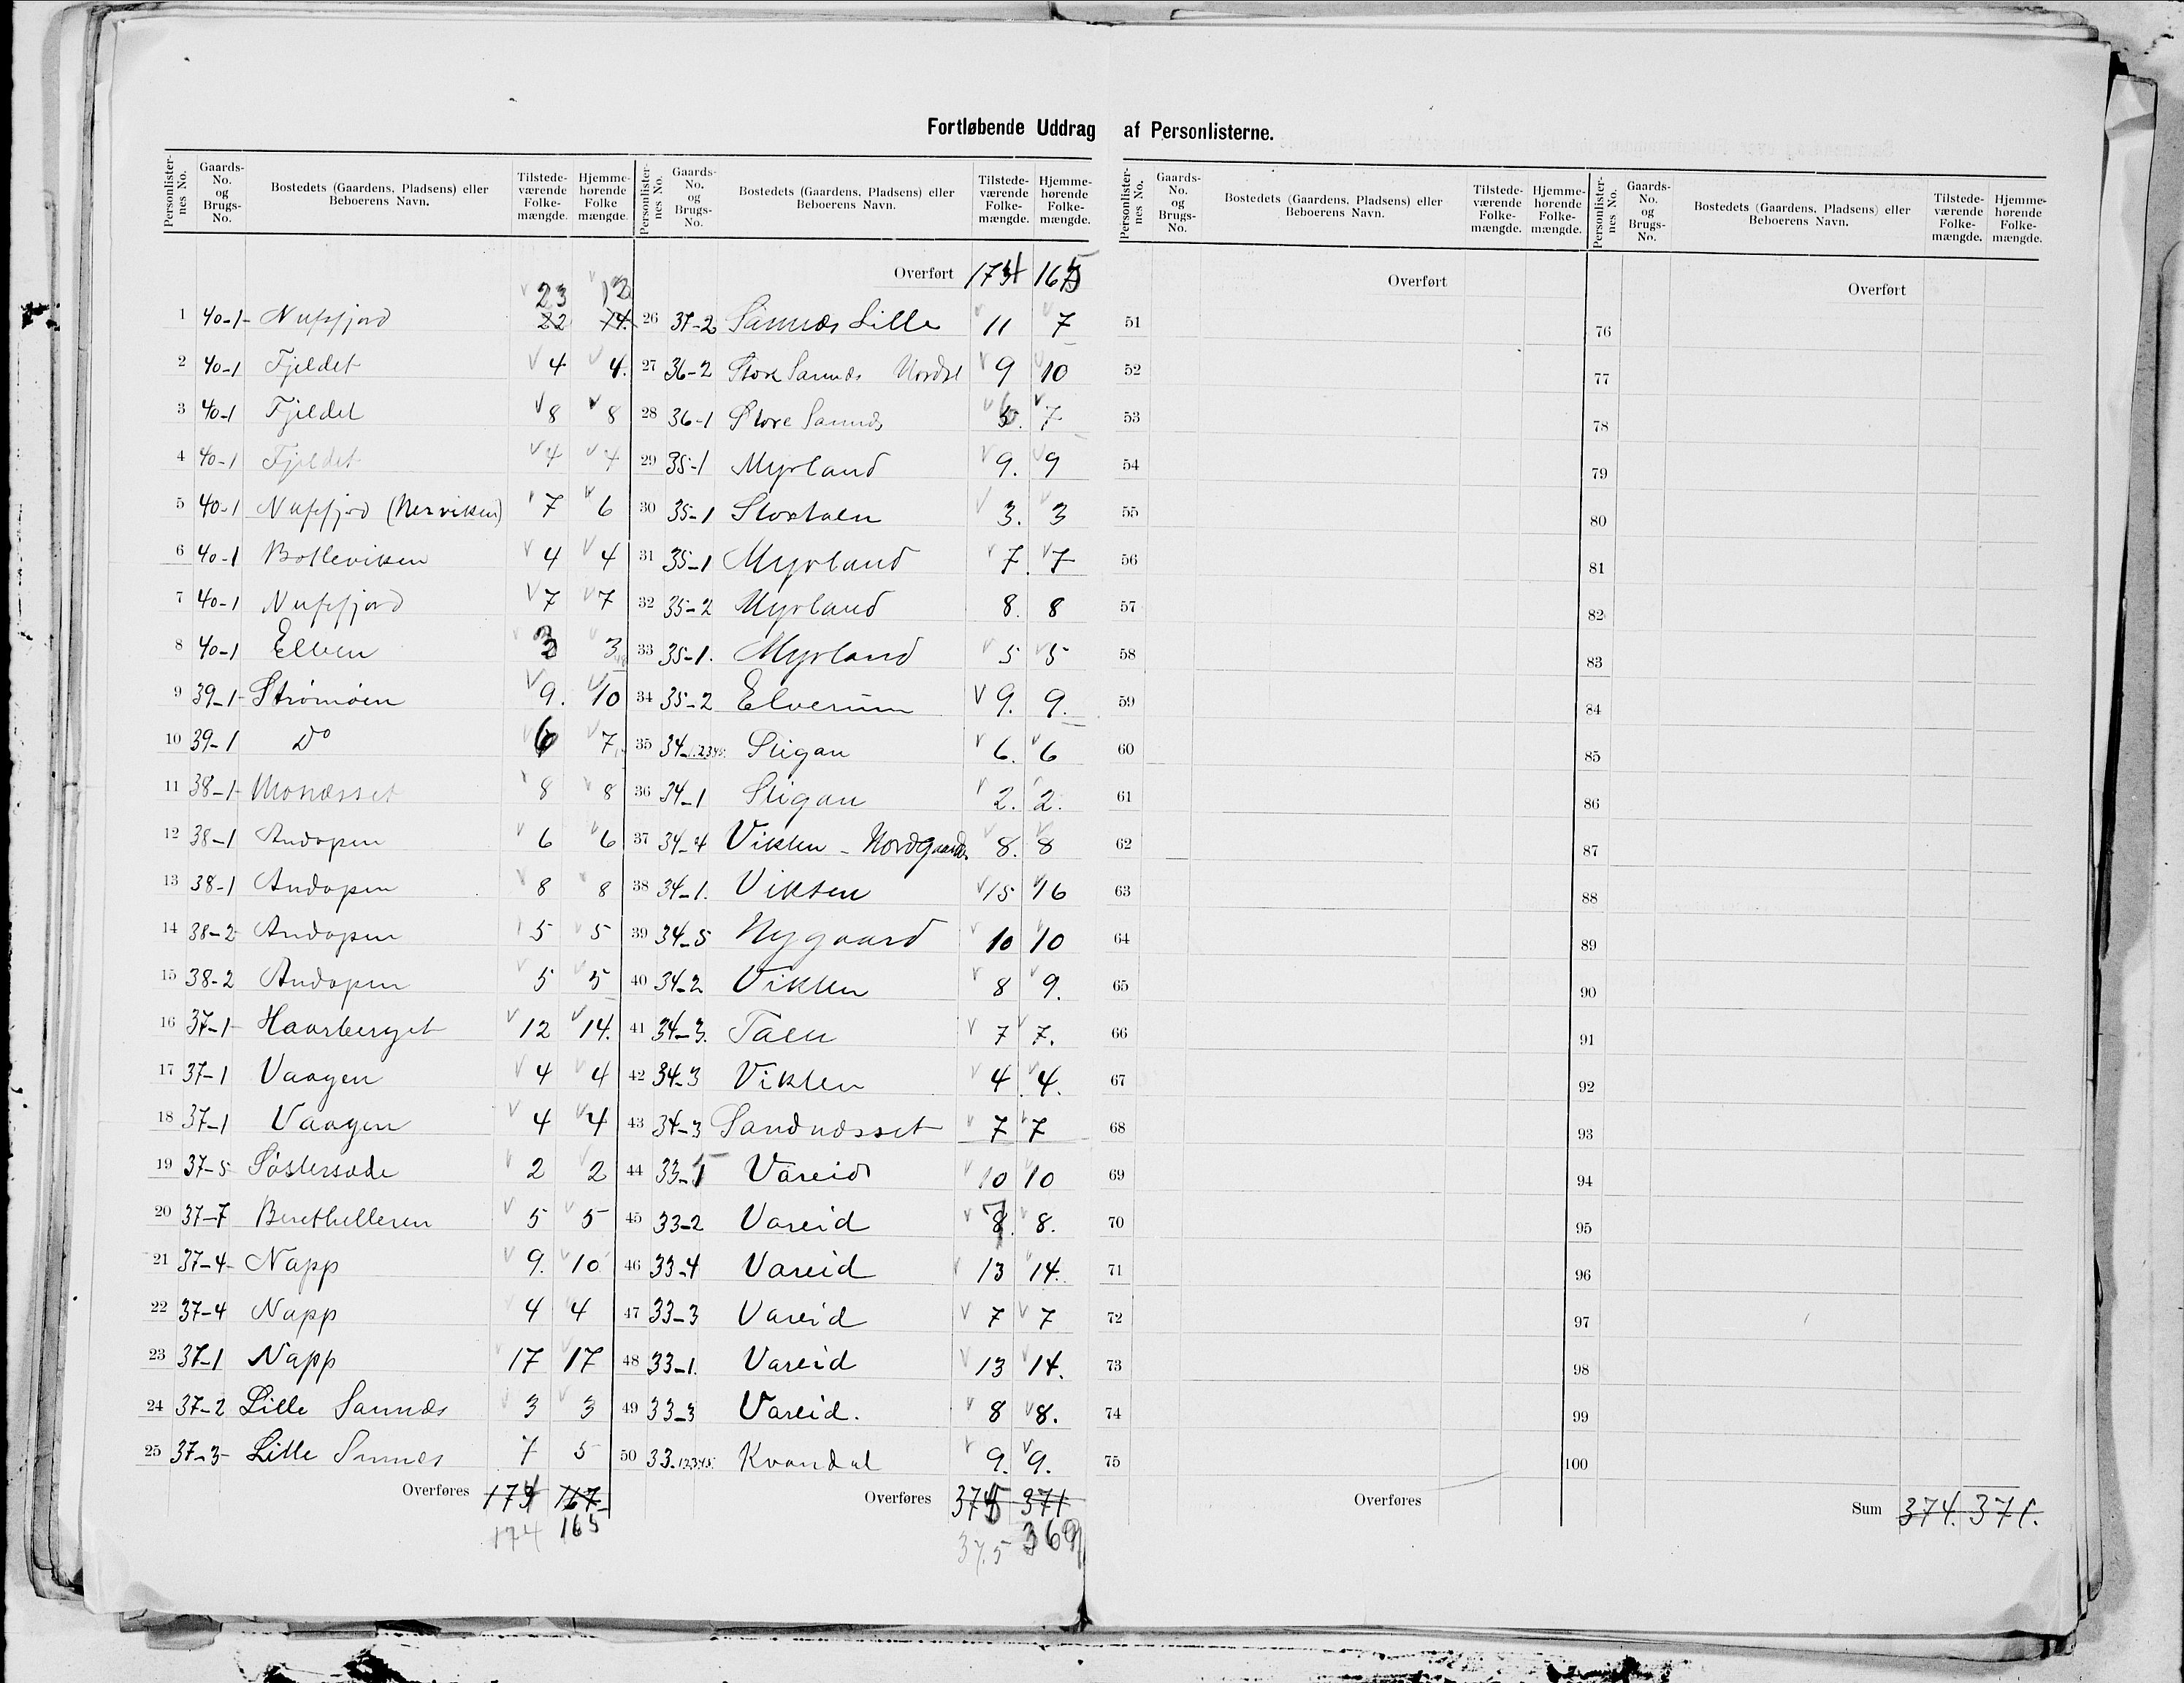 Fortløbende Uddrag af Personlisterne.
Personlister-nes No. Gaards-No. og Brugs-No. Bostedets (Gaardens, Pladsens) eller Beboerens Navn. Tilstede-værende Folke-mængde. Hjemme-hørende Folke mængde.
Personlister-nes No. Gaards-No. og Brugs-No. Bostedets (Gaardens, Pladsens) eller Beboerens Navn. Tilstede-værende Folke-mængde. Hjemme-hørende Folke-mængde.
1 40-1 Nufsfjord 22 23 14 12
2 40-1 Fjeldet 4 4.
3 40-1 Fjeldet 8 8
4 40-1 Fjeldet 4 4
5 40-1 Nufsfjord (Nerviken) 7 6
6 40-1 Bolleviken 4 4
7 40-1 Nufsfjord 7 7
8 40-1 Elven 3 3
9 39-1 Strømøen 9. 10
10 39-1 Do 6 7
11 38-1 Monæsset 8 8
12 38-1 Andopen 6 6
13 38-1 Andopen 8 8
14 38-2 Andopen 5 5
15 38-2 Andopen 5 5
16 37-1 Haarberget 12 14.
17 37-1 Vaagen 4 4
18 37-1 Vaagen 4 4
19 37-5 Søstersæde 2 2
20 37-7 Berethelleren 5 5
21 37-4 Napp 9. 10
22 37-4 Napp 4 4
23 37-1 Napp 17 17
24 37-2 Lille Sannæs 3 3
25 37-3 Lille Sannæs 7 5
Overføres 174 167
174 165
Overført 174 165
26 37-2 Sannæs Lille 11 7
27 36-2 Store Sannæs Nordre 9 10
28 36-1 Store Sannæs 7
29 35-1 Myrland 9. 9
30 35-1 Stortaen 3. 3
31 35-1 Myrland 7. 7
32 35-2 Myrland 8. 8
33 35-1. Myrland 5 5
34 35-2 Elverum 9. 9.
35 34-1.2.3.4.5. Stigan 6. 6
36 34-1 Stigan 2. 2.
37 34-4 Vikten - Nordgaarden 8. 8
38 34-1. Vikten 15 16
39 34-5 Nygaard 10 10
40 34-2 Vikten 8 9.
41 34-3. Taen 7 7.
42 34-3 Vikten 4 4.
43 34-3 Sandnæsset 7 7
44 33-5 Vareid 10 10
45 33-2 Vareid 7 8.
46 33-4 Vareid 13 14.
47 33-3 Vareid 7 7
48 33-1. Vareid 13 14.
49 33-3 Vareid. 8 8.
50 33.12345. Kvandal 9. 9.
Overføres 375 371
375 369
Personlister-nes No. Gaards-No. og Brugs-No. Bostedets (Gaardens, Pladsens) eller Beboerens Navn. Tilstede-værende Folke-mængde. Hjemme-hørende Folke-mængde.
Overført
51
52
53
54
55
56
57
58
59
60
61
62
63
64
65
66
67
68
69
70
71
72
73
74
75
Overføres
Personlister-nes No. Gaards-No. og Brugs-No. Bostedets (Gaardens, Pladsens) eller Beboerens Navn. Tilstede-værende Folke-mængde. Hjemme-hørende Folke-mængde.
Overført
76
77
78
79
80
81
82
83
84
85
86
87
88
89
90
91
92
93
94
95
96
97
98
99
100
Sum 374. 371.